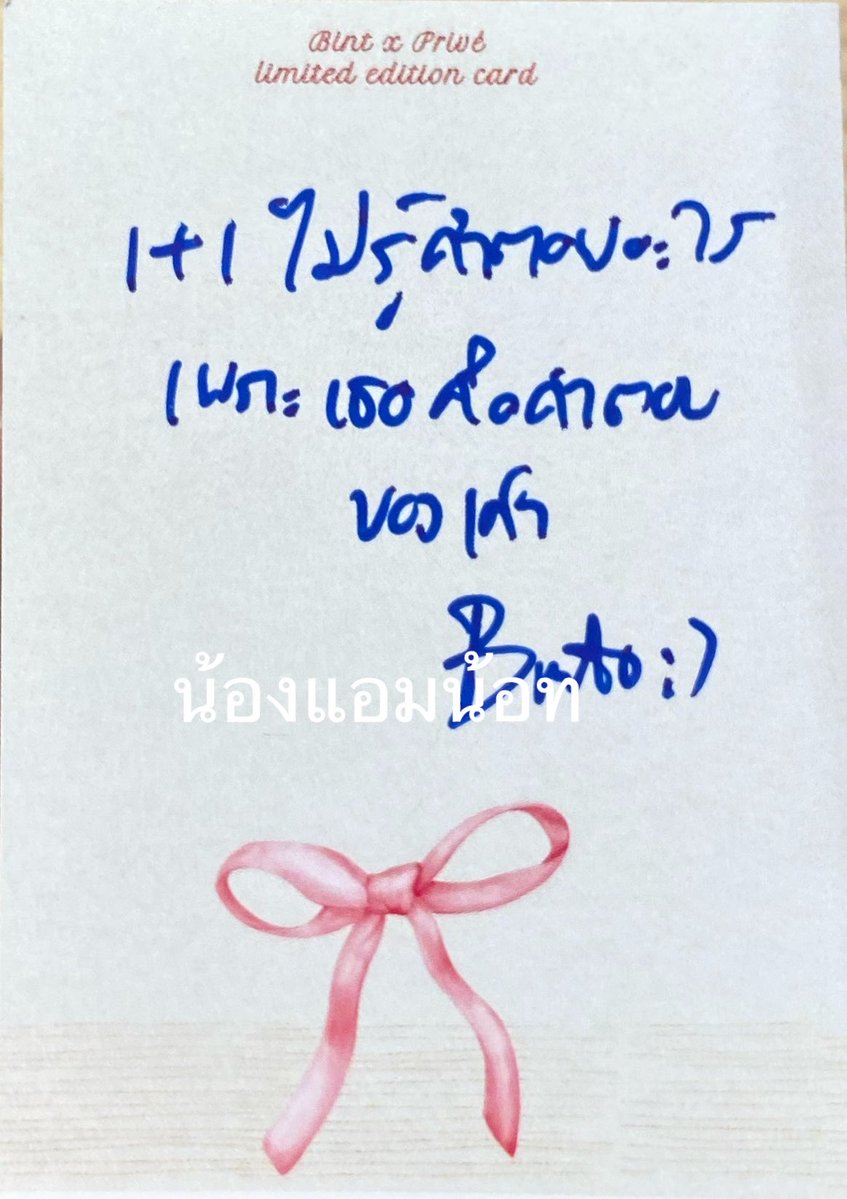 Bint x Privé
limited edition card
1+1 ไม่รู้คำตอบอะไร
เพราะ เธอ คือคำตอบ
ของ เค้า
:)
น้องแอมน้อท